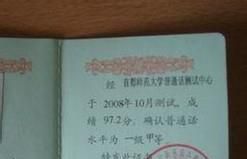 经 首都师范大学普通话测试中心
于 2008年10月测试，成
绩 97.2分，确认普通话
水平为 一级 甲等。
特发此证书